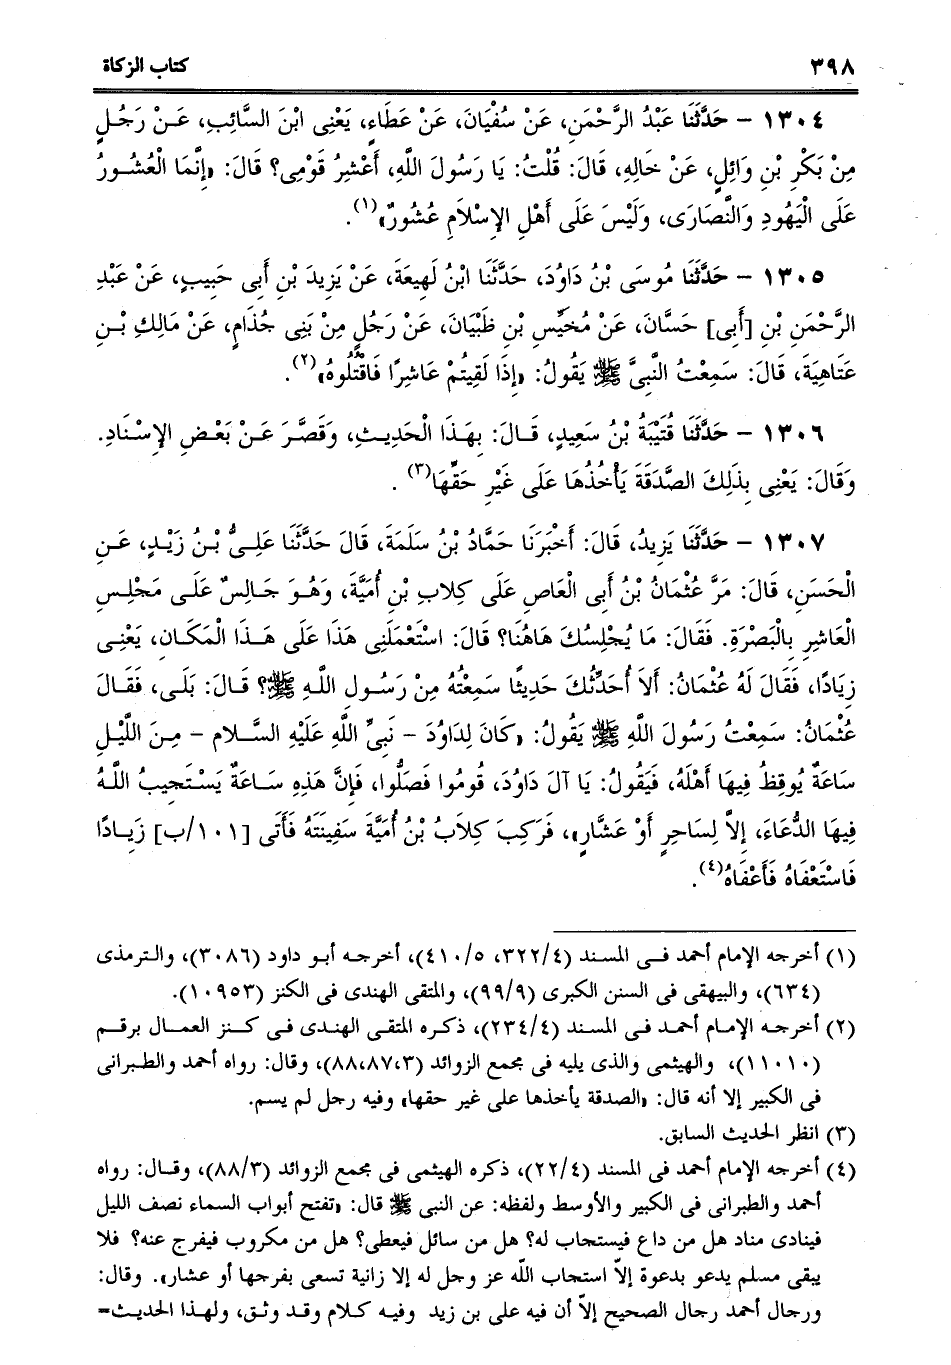 ٣٩٨ كتاب الزكاة
١٣٠٤ – حَدَّثَنَا عَبْدُ الرَّحْمَنِ، عَنْ سُفْيَانَ، عَنْ عَطَاءٍ، يَعْنِى ابْنَ السَّائِبِ، عَـنْ رَجُـلٍ
مِنْ بَكْرِ بْنِ وَائِلٍ، عَنْ خَالِهِ، قَالَ: قُلْتُ: يَا رَسُولَ اللَّهِ، أَعْشِرُ قَوْمِى؟ قَالَ: «إِنَّمَا الْعُشُـورُ
عَلَى الْيَهُودِ وَالنَّصَارَى، وَلَيْسَ عَلَى أَهْلِ الإِسْلاَمِ عُشُورٌ»(١).
١٣٠٥ – حَدَّثَنَا مُوسَى بْنُ دَاوُدَ، حَدَّثَنَا ابْنُ لَهِيعَةَ، عَنْ يَزِيدَ بْنِ أَبِى حَبِيبٍ، عَنْ عَبْدِ
الرَّحْمَنِ بْنِ [أَبِى] حَسَّانَ، عَنْ مُخَيِّسِ بْنِ ظَبْيَانَ، عَنْ رَجُلٍ مِنْ بَنِى جُذَامٍ، عَنْ مَالِكِ بْـنِ
عَتَاهِيَةَ، قَالَ: سَمِعْتُ النَّبِىَّ ﷺ يَقُولُ: «إِذَا لَقِيتُمْ عَاشِرًا فَاقْتُلُوهُ»(٢).
١٣٠٦ – حَدَّثَنَا قُتَيْبَةُ بْنُ سَعِيدٍ، قَـالَ: بِهَـذَا الْحَدِيـثِ، وَقَصَّرَ عَـنْ بَعْـضِ الإِسْـنَادِ.
وَقَالَ: يَعْنِى بِذَلِكَ الصَّدَقَةَ يَأْخُذُهَا عَلَى غَيْرِ حَقِّهَا(٣) .
١٣٠٧ – حَدَّثَنَا يَزِيدُ، قَالَ: أَخْبَرَنَا حَمَّادُ بْنُ سَلَمَةَ، قَالَ حَدَّثَنَا عَلِـىُّ بْـنُ زَيْـدٍ، عَـنِ
الْحَسَنِ، قَالَ: مَرَّ عُثْمَانُ بْنُ أَبِى الْعَاصِ عَلَى كِلاَبِ بْنِ أُمَيَّةَ، وَهُـوَ جَـالِسٌ عَلَـى مَجْلِـسِ
الْعَاشِرِ بِالْبَصْرَةِ. فَقَالَ: مَا يُجْلِسُكَ هَاهُنَا؟ قَالَ: اسْتَعْمَلَنِى هَذَا عَلَى هَـذَا الْمَكَـانِ، يَعْنِـى
زِيَادًا، فَقَالَ لَهُ عُثْمَانُ: أَلاَ أُحَدِّثُكَ حَدِيثًا سَمِعْتُهُ مِنْ رَسُـولِ اللَّـهِ ﷺ؟ قَـالَ: بَلَـى، فَقَـالَ
عُثْمَانُ: سَمِعْتُ رَسُولَ اللَّهِ ﷺ يَقُولُ: «كَانَ لِدَاوُدَ – نَبِىِّ اللَّهِ عَلَيْهِ السَّـلام – مِـنَ اللَّيْـلِ
سَاعَةٌ يُوقِظُ فِيهَا أَهْلَهُ، فَيَقُولُ: يَا آلَ دَاوُدَ، قُومُوا فَصَلُّوا، فَإِنَّ هَذِهِ سَـاعَةٌ يَسْـتَجِيبُ اللَّـهُ
فِيهَا الدُّعَاءَ، إِلاَّ لِسَاحِرٍ أَوْ عَشَّارٍ»، فَرَكِبَ كِلاَبُ بْنُ أُمَيَّةَ سَفِينَتَهُ فَأَتَى [١٠١/ب] زِيَـادًا
فَاسْتَعْفَاهُ فَأَعْفَاهُ(٤).
(١) أخرجه الإمام أحمد فـى المسند (٣٢٢/٤، ٤١٠/٥)، أخرجـه أبـو داود (٣٠٨٦)، والـترمذى
(٦٣٤)، والبيهقى فى السنن الكبرى (٩٩/٩)، والمتقى الهندى فى الكنز (١٠٩٥٣).
(٢) أخرجـه الإمـام أحمـد فـى المسـند (٢٣٤/٤)، ذكـره المتقـى الهنـدى فـى كـنز العمـال برقـم
(١١٠١٠)، والهيثمى والذى يليه فى مجمع الزوائد (٨٨،٨٧،٣)، وقال: رواه أحمد والطـبرانى
فى الكبير إلا أنه قال: «الصدقة يأخذها على غير حقها» وفيه رجل لم يسم.
(٣) انظر الحديث السابق.
(٤) أخرجه الإمام أحمد فى المسند (٢٢/٤)، ذكره الهيثمى فى مجمع الزوائد (٨٨/٣)، وقـال: رواه
أحمد والطبرانى فى الكبير والأوسط ولفظه: عن النبى ﷺ قال: «تفتح أبواب السماء نصف الليل
فينادى مناد هل من داع فيستجاب له؟ هل من سائل فيعطى؟ هل من مكروب فيفرج عنه؟ فلا
يبقى مسلم يدعو بدعوة إلاّ استجاب اللّه عز وجل له إلا زانية تسعى بفرجها أو عشار». وقال:
ورجال أحمد رجال الصحيح إلاّ أن فيه على بن زيد وفيـه كـلام وقـد وثـق، ولهـذا الحديـث=